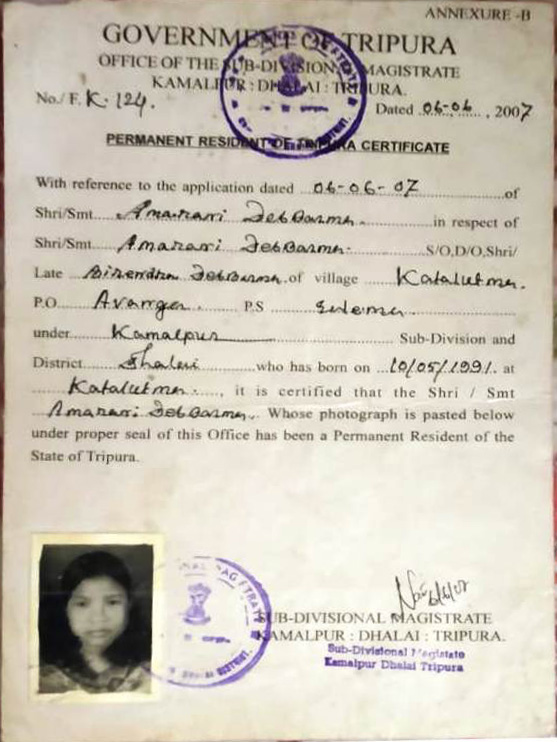 ANNEXURE -B
GOVERNMENT OF TRIPURA
OFFICE OF THE SUB-DIVISIONAL MAGISTRATE
KAMALPUR : DHALAI : TRIPURA.
No./ F. K. 124. Dated 06-06, 2007
PERMANENT RESIDENT OF TRIPURA CERTIFICATE
With reference to the application dated 06-06-07 of
Shri/Smt. Amarari DebBarma in respect of
Shri/Smt. Amarari DebBarma. S/O,D/O,Shri/
Late Birendra DebBarma of village Katalutma.
P.O. Avanga P.S
under Kamalpur Sub-Division and
District Dhalai who has born on 10/05/1991. at
Katalutma, it is certified that the Shri / Smt
Amarari DebBarma. Whose photograph is pasted below
under proper seal of this Office has been a Permanent Resident of the
State of Tripura.
6/6/07
SUB-DIVISIONAL MAGISTRATE
KAMALPUR : DHALAI : TRIPURA.
Sub-Divisional Magistrate
Kamalpur Dhalai Tripura